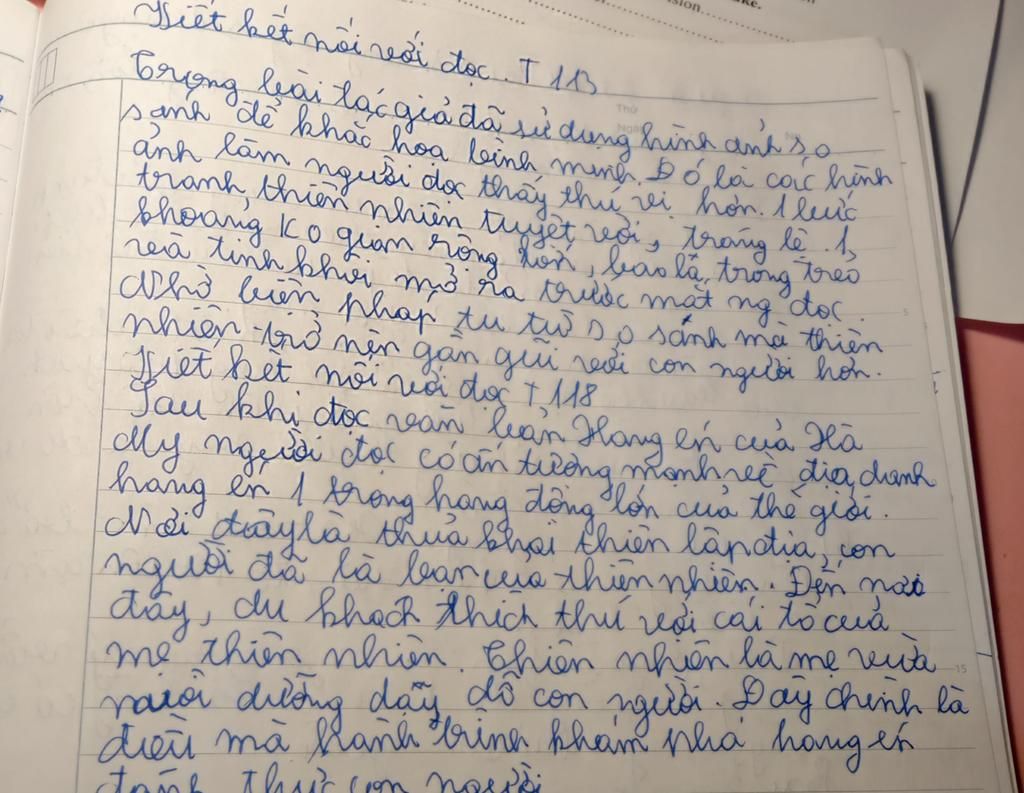 sion..................
ke.
Viết kết nối với đọc. T 113
Trong bài tác giả đã sử dụng hình ảnh so
sánh để khắc họa bình minh. Đó là các hình
ảnh làm người đọc thấy thú vị hơn. 1 bức
tranh thiên nhiên tuyệt vời, tráng lệ. 1
khoảng ko gian rộng lớn, bao la, trong trẻo
và tinh khôi mở ra trước mắt ng đọc.
Nhờ biện pháp tu từ so sánh mà thiên
nhiên trở nên gần gũi với con người hơn.
Viết kết nối với đọc T 118
Sau khi đọc văn bản Hang én của Hà
My người đọc có ấn tượng mạnh về địa danh
hang én 1 trong hang động lớn của thế giới.
Nơi đây là thuở khai thiên lập địa, con
người đã là bạn của thiên nhiên. Đến nơi
đây, du khách thích thú với cái tổ của
mẹ thiên nhiên. Thiên nhiên là mẹ vừa
nuôi dưỡng dạy dỗ con người. Đây chính là
điều mà hành trình khám phá hang én
đánh thức con người